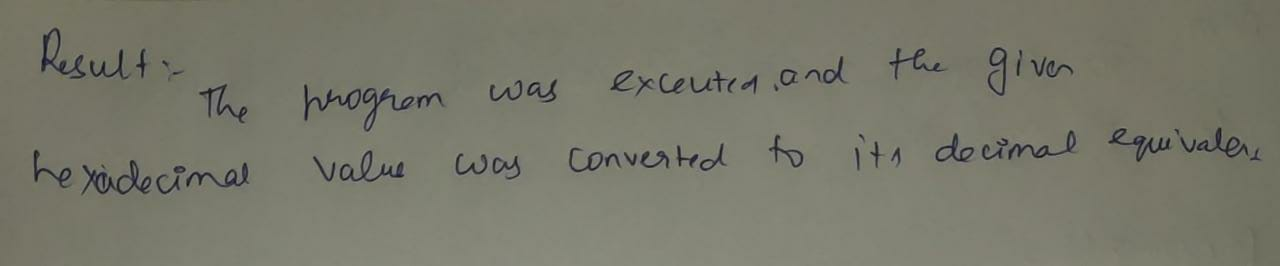 Result :-
The program was executed and the given
hexadecimal value was converted to its decimal equivalent